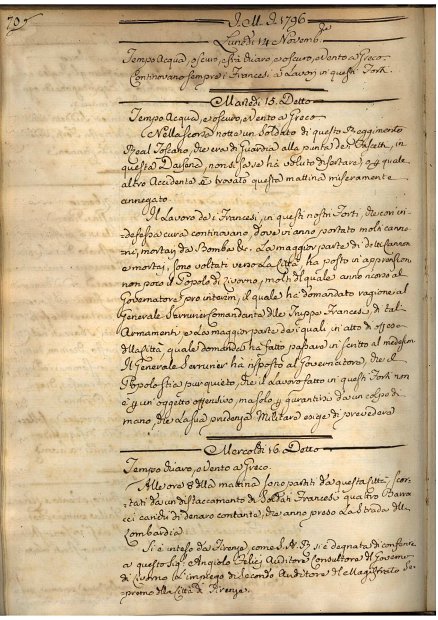 70.
A.M.D. 1796
Lunedì 14 Novemb.
Tempo Acqua, oscuro, e vento a Greco.
Continovano sempre i Francesi a Lavori in questi Forti.
Martedì 15. Detto
Tempo Acqua, e oscuro, e vento a Greco
Nella scorsa notte un Soldato di questo Reggimento
Real Toscano, che era di Guardia alla punta dei
questa Darsena, non si sa se ha voluto disertare, o p. quale
altro Accidente è trovato questa mattina miseramente
annegato.
Il Lavoro de i Francesi, in questi nostri Forti, che con in-
-defessa cura continovano, dove vi anno portato molti canno-
ni, mortaj da Bombe &c. La maggior parte di detti Cannoni
e mortaj, sono voltati verso La Città ha posto in apprensione
non poco il Popolo di Livorno, molti del quale anno ricorso al
Governatore pro interim, il quale ha domandato ragione al
Generale Serrurier Comandante delle Truppe Francesi, di tali
Armamenti e La maggior parte de i quali in atto di offesa
della Città quale domanda ha fatto passare in scritto al medesimo
Il Generale Serrurier ha risposto al Governatore, che il
Popolo stia pur quieto, che il Lavoro fatto in questi Forti non
è p. un oggetto offensivo, ma solo p. garantirsi da un colpo di
mano, che La sua prudenza Militare esige di prevedere
Mercoldì 16. Detto
Tempo chiaro, e Vento a Greco.
Alle ore 8 della mattina sono partiti da questa Città, scor-
tati da un distaccamento di Soldati Francesi quattro Barroc-
ci carichi di denaro contante, che anno preso La strada della
Lombardia
Si è inteso da Firenze come S. A. R. si è degnata di conferire
a questo Sig.re Angiolo Felici Auditore Consultore del Governo
di Livorno L'impiego di secondo Auditore del Magistrato Su-
premo della Città di Firenze.